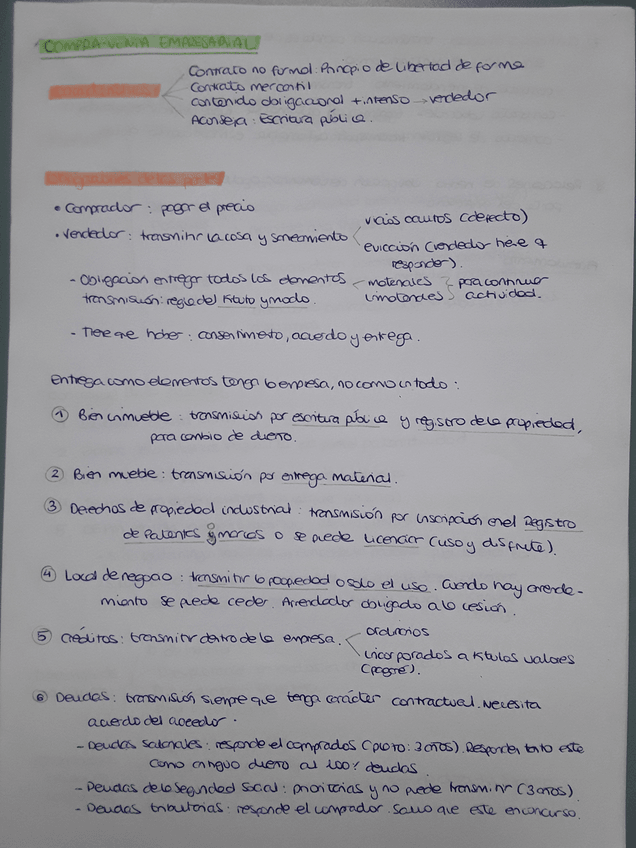 COMPRA-VENTA EMPRESARIAL
Contrato no formal. Principio de libertad de forma
Características
Contrato mercantil
contenido obligacional + intenso → vendedor
Aconseja: Escritura pública.
Obligaciones de las partes
• Comprador: pagar el precio
vicios ocultos (defecto)
• Vendedor: transmitir la cosa y saneamiento
evicción (vendedor tiene q
responder).
- Obligación entregar todos los elementos
materiales } para continuar
transmisión: regla del título y modo.
inmateriales } actividad.
- Tiene que haber: consentimiento, acuerdo y entrega.
Entrega como elementos tenga la empresa, no como un todo:
① Bien inmueble: transmisión por escritura pública y registro de la propiedad,
para cambio de dueño.
② Bien mueble: transmisión por entrega material.
③ Derechos de propiedad industrial: transmisión por inscripción en el Registro
de Patentes y marcas o se puede Licenciar (uso y disfrute).
④ Local de negocio: transmitir la propiedad o solo el uso. Cuando hay arrenda-
miento se puede ceder. Arrendador obligado a la cesión.
⑤ Créditos: transmitir dentro de la empresa.
ordinarios
incorporados a títulos valores
(pagaré).
⑥ Deudas: transmisión siempre que tenga carácter contractual. Necesita
acuerdo del acreedor.
- Deudas salariales: responde el comprados (plazo: 3 años). Responden tanto este
como antiguo dueño al 100% deudas
- Deudas de la Seguridad Social: prioritarias y no puede transmitir (3 años)
- Deudas tributarias: responde el comprador. Salvo que este en concurso.